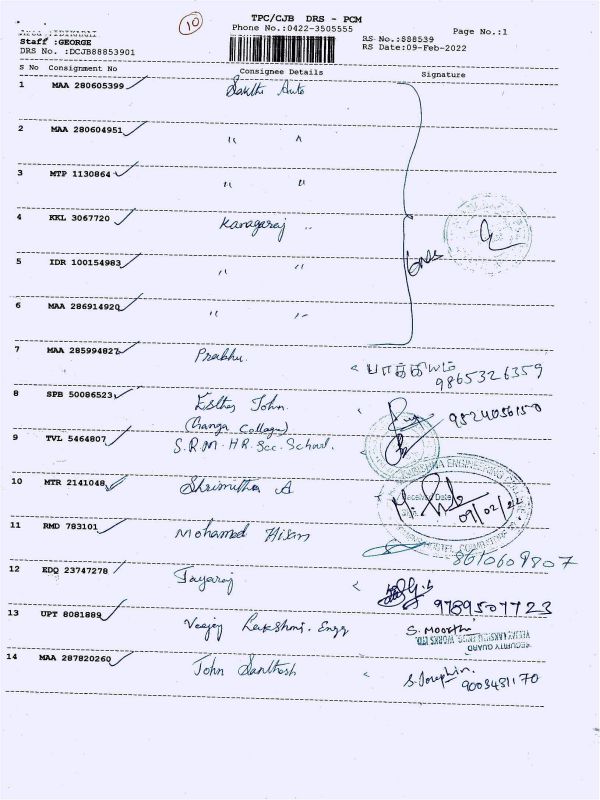 10
TPC/CJB DRS - PCM
Phone No.:0422-3505555
RS No.:888539
Page No.:1
Staff :GEORGE
RS Date:09-Feb-2022
DRS No. :DCJB88853901
S No Consignment No
Consignee Details
Signature
1 MAA 280605399 Sakthi Auto
2 MAA 280604951 " "
3 MTP 1130864 " "
4 KKL 3067720 Kanagaraj "
5 IDR 100154983 " "
6 MAA 286914920 " "
7 MAA 285994827 Prabhu.
9865326359
8 SPB 50086523 Esther John
9524056150
(Ganga College)
9 TVL 5464807 S.R.M. HR. Sec. School.
10 MTR 2141048 Shrimitha A
Received Date
09/02/22
11 RMD 783101 Mohamed
8610609807
12 EDQ 23747278 Jayaraj
9789507723
13 UPT 8081889 Veejay Lakshmi. Engg
S. Moorthi
SECURITY GUARD
VEEJAY LAKSHMI ENGG. WORKS LTD.
14 MAA 287820260 John Santhosh
S. Josephin.
9003431170